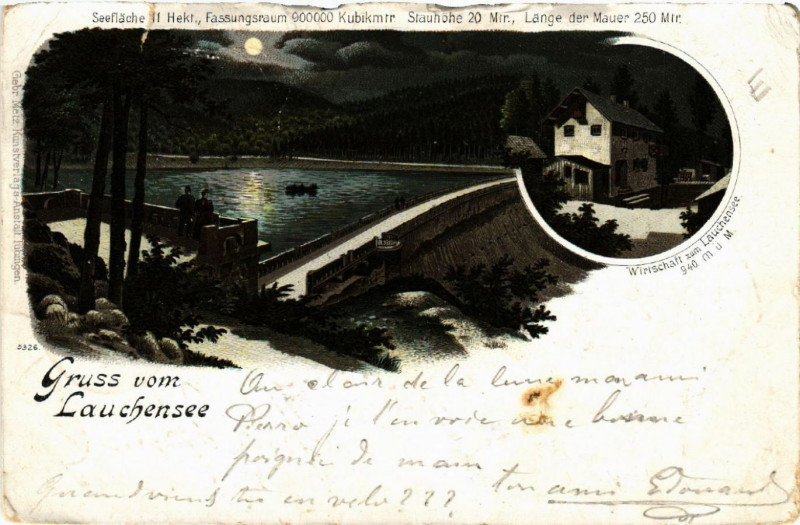 Seefläche 11 Hekt., Fassungsraum 900000 Kubikmtr Stauhöhe 20 Mtr., Länge der Mauer 250 Mtr.
Gebr. Metz Kunstverlags-Anstalt Tübingen.
Wirtschaft zum Lauchensee.
940 m ü M.
5326.
Gruss vom
Lauchensee
Au clair de la lune mon ami
Pierro je t'envoie une bonne
poignée de main
Quand viens tu en velo???
ton ami Edouard